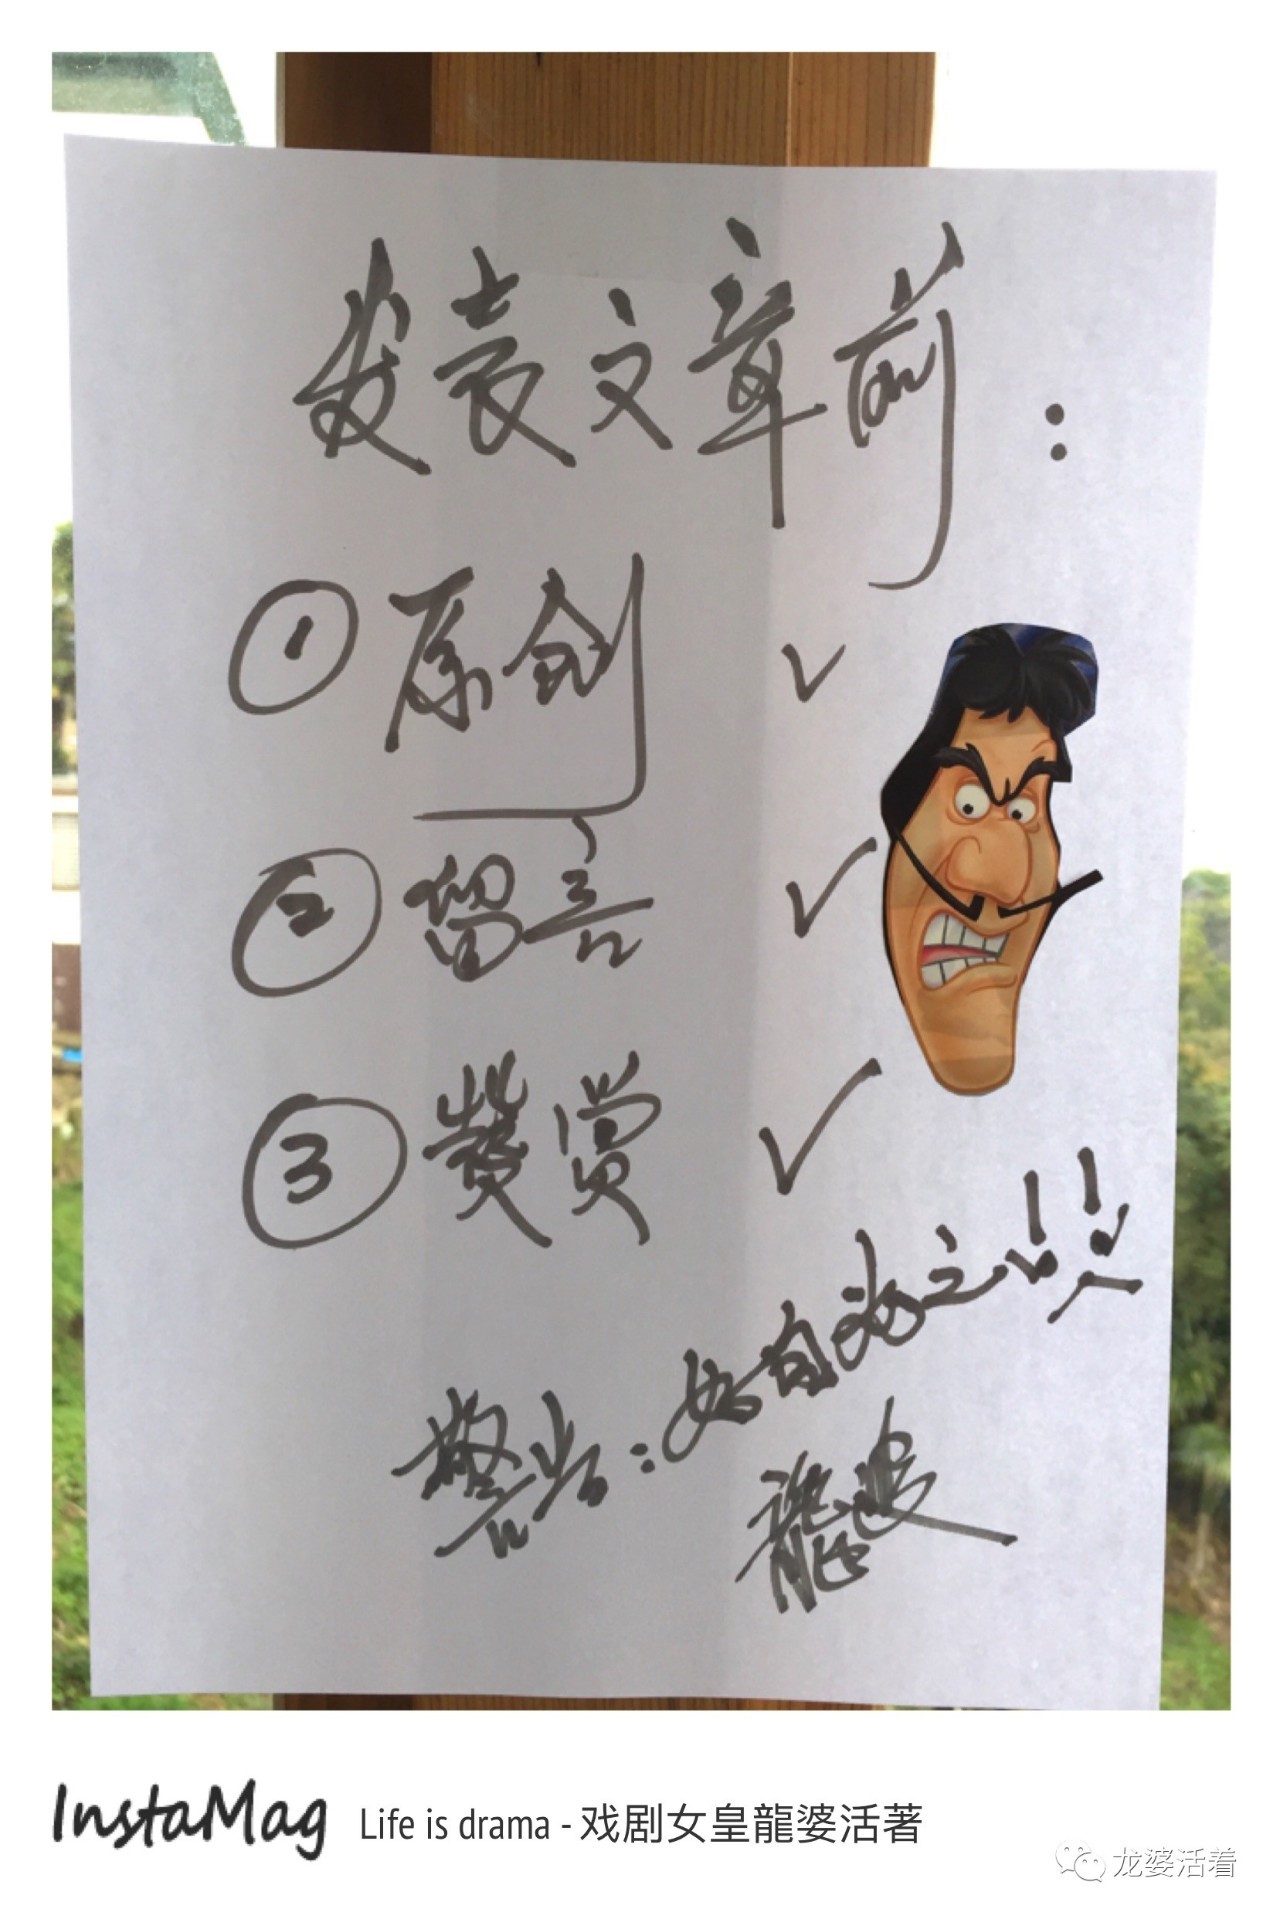 发表文章前：
① 原创 ✓
② 留言 ✓
③ 赞赏 ✓
警告：好自为之！！
龍婆
InstaMag
Life is drama - 戏剧女皇龍婆活著
龙婆活着